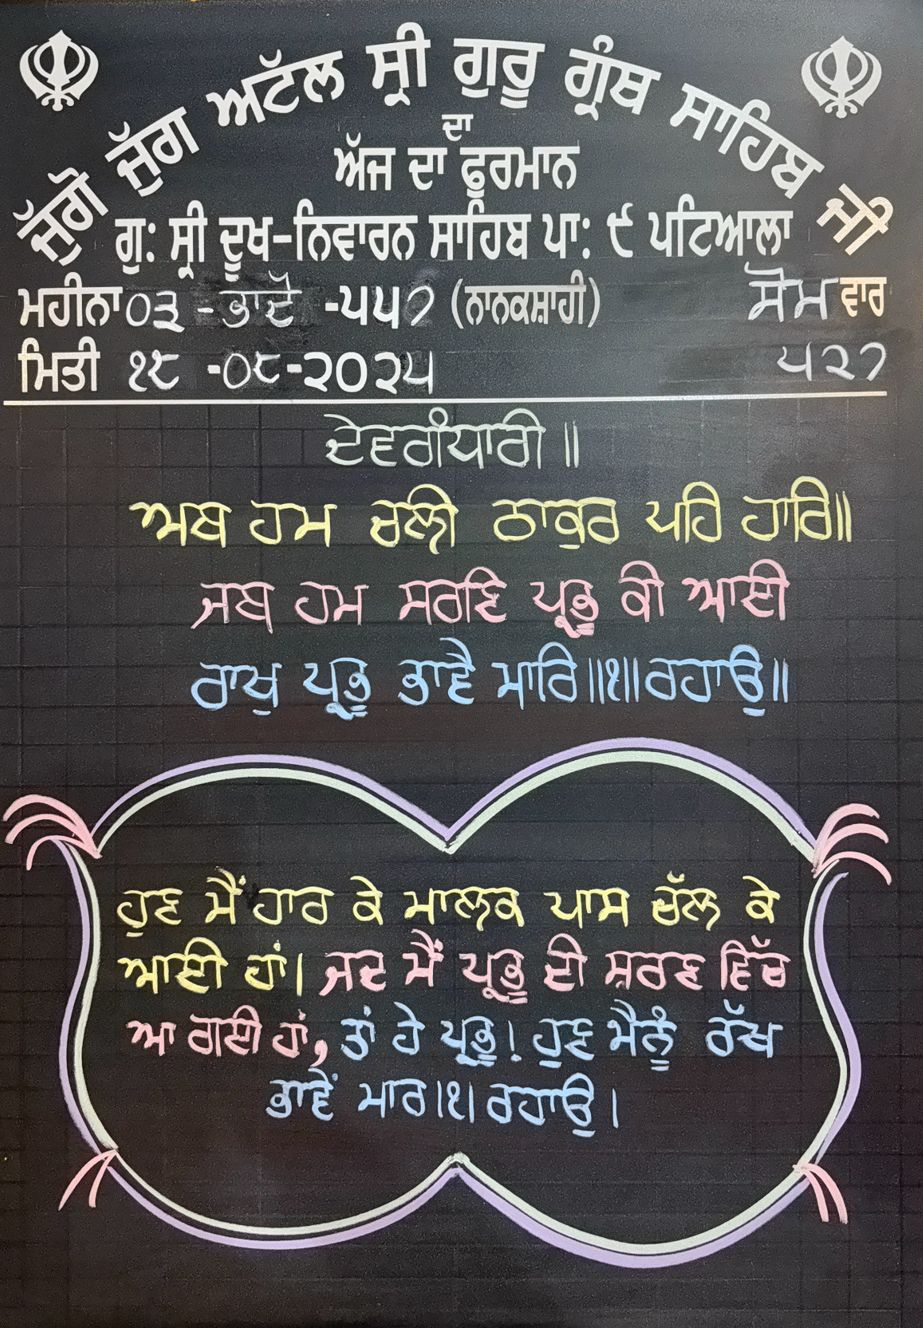 ਜੁੱਗੋ ਜੁੱਗ ਅਟੱਲ ਸ੍ਰੀ ਗੁਰੂ ਗ੍ਰੰਥ ਸਾਹਿਬ ਜੀ
ਦਾ
ਅੱਜ ਦਾ ਫੁਰਮਾਨ
ਗੁ: ਸ੍ਰੀ ਦੂਖ-ਨਿਵਾਰਨ ਸਾਹਿਬ ਪਾ: ੯ ਪਟਿਆਲਾ
ਮਹੀਨਾ ੦੩ -ਭਾਦੋਂ -੫੫੭ (ਨਾਨਕਸ਼ਾਹੀ) ਸੋਮਵਾਰ
ਮਿਤੀ ੧੮ -੦੮-੨੦੨੫ ੫੨੭
ਦੇਵਗੰਧਾਰੀ ॥
ਅਬ ਹਮ ਚਲੀ ਠਾਕੁਰ ਪਹਿ ਹਾਰਿ॥
ਜਬ ਹਮ ਸਰਣਿ ਪ੍ਰਭੂ ਕੀ ਆਈ
ਰਾਖੁ ਪ੍ਰਭੂ ਭਾਵੈ ਮਾਰਿ॥੧॥ਰਹਾਉ॥
ਹੁਣ ਮੈਂ ਹਾਰ ਕੇ ਮਾਲਕ ਪਾਸ ਚੱਲ ਕੇ
ਆਈ ਹਾਂ। ਜਦ ਮੈਂ ਪ੍ਰਭੂ ਦੀ ਸ਼ਰਣ ਵਿੱਚ
ਆ ਗਈ ਹਾਂ, ਤਾਂ ਹੇ ਪ੍ਰਭੂ! ਹੁਣ ਮੈਨੂੰ ਰੱਖ
ਭਾਵੇਂ ਮਾਰ।੧।ਰਹਾਉ।